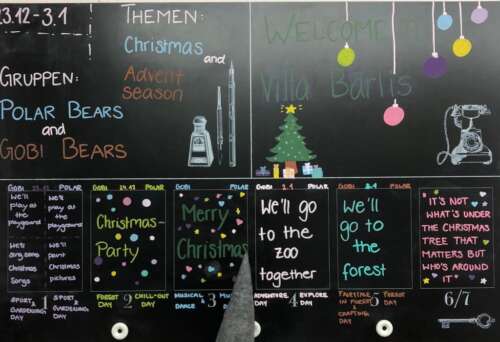 23.12-3.1
THEMEN:
Christmas
and
Advent
season
GRUPPEN:
POLAR BEARS
and
GOBI BEARS
WELCOME
Villa Bärlis
GOBI 23.12 POLAR
We'll play at the playground
We'll play at the playground
We'll sing some Christmas Songs
We'll paint Christmas pictures
1
SPORT & GARDENING DAY
SPORT & GARDENING DAY
GOBI 24.12 POLAR
Christmas-
Party
2
FOREST DAY
CHILL-OUT DAY
GOBI POLAR
Merry
Christmas
3
MUSICAL DANCE
GOBI 2.1 POLAR
We'll go
to the
zoo
together
4
ADVENTURE DAY
EXPLORE DAY
GOBI 3.1 POLAR
We'll
go to
the
forest
5
FOREST DAY
IT'S NOT
WHAT'S UNDER
THE CHRISTMAS
TREE THAT
MATTERS BUT
WHO'S AROUND
IT
6/7